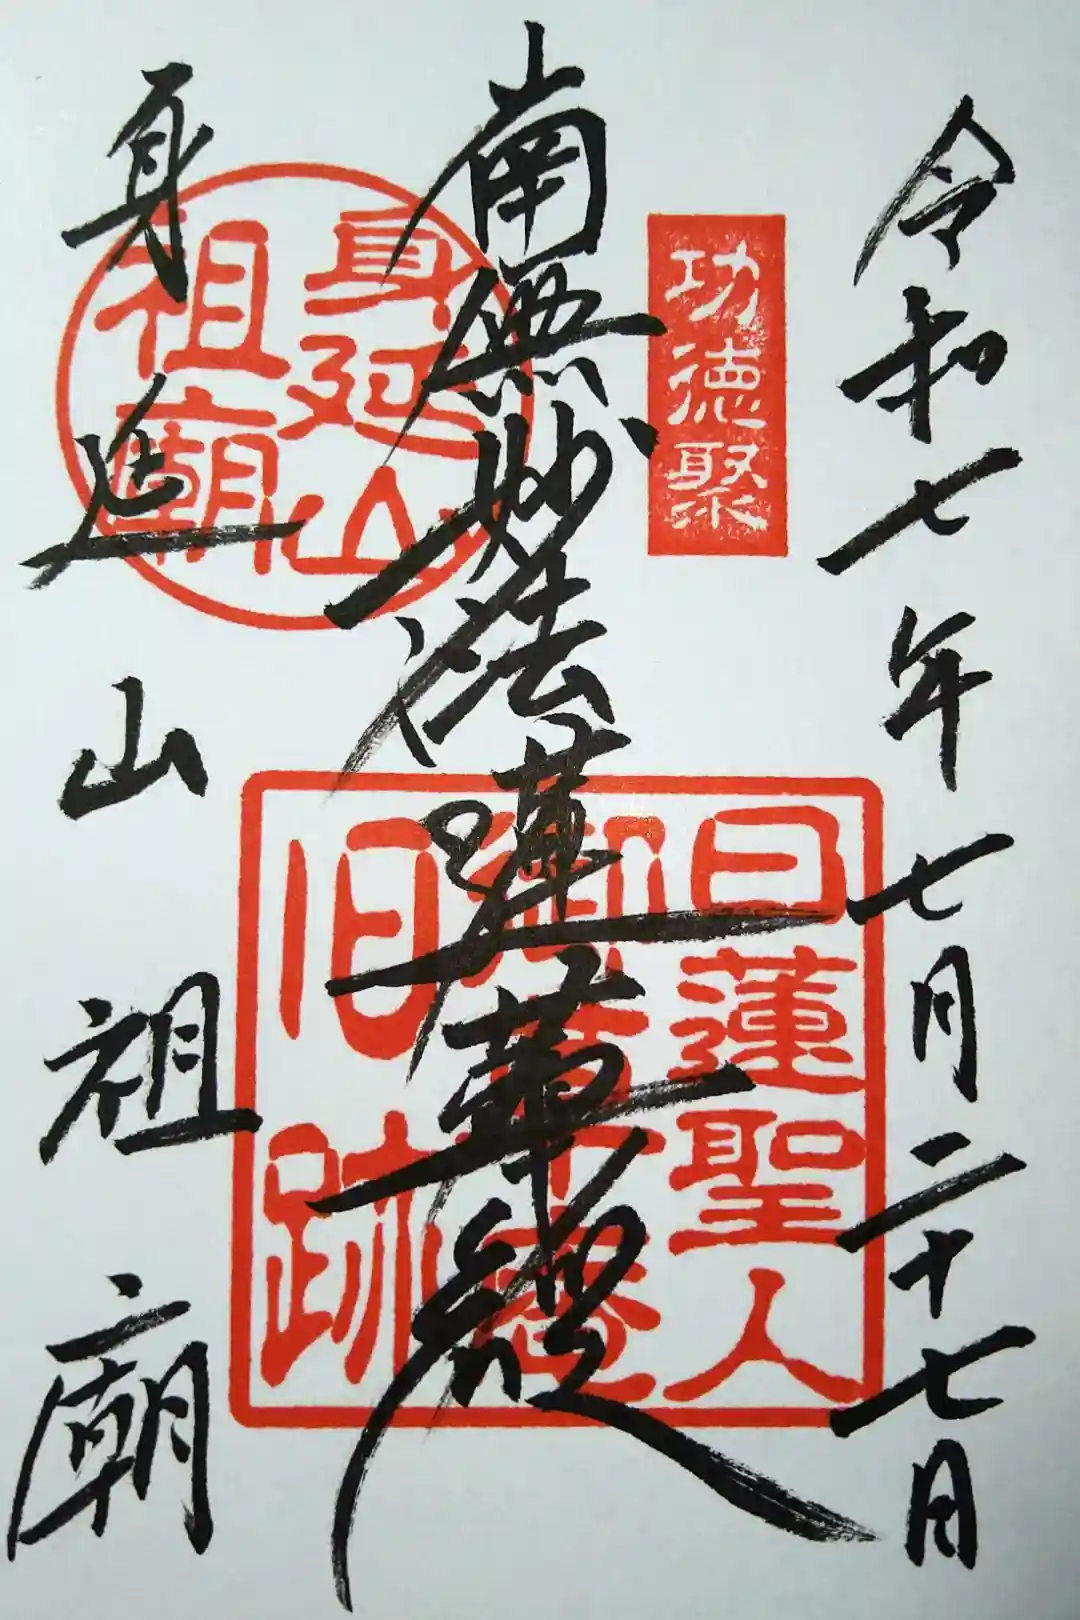 令和七年七月二十七日
功徳聚
南無妙法蓮華経
身延山
祖廟
日蓮聖人
御草庵
旧跡
身延山祖廟